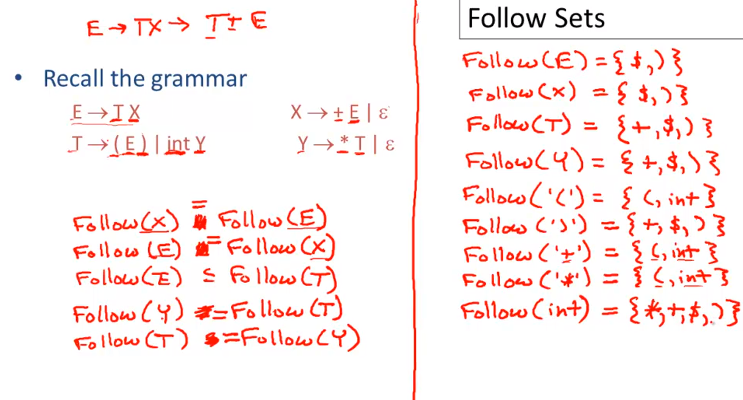 E → TX → T + E
• Recall the grammar
E → T X X → + E | ε
T → ( E ) | int Y Y → * T | ε
Follow(X) = Follow(E)
Follow(E) = Follow(X)
Follow(E) ⊆ Follow(T)
Follow(Y) = Follow(T)
Follow(T) = Follow(Y)
Follow Sets
Follow(E) = { $, ) }
Follow(X) = { $, ) }
Follow(T) = { +, $, ) }
Follow(Y) = { +, $, ) }
Follow('(') = { (, int }
Follow(')') = { +, $, ) }
Follow('+') = { (, int }
Follow('*') = { (, int }
Follow(int) = { *, +, $, ) }